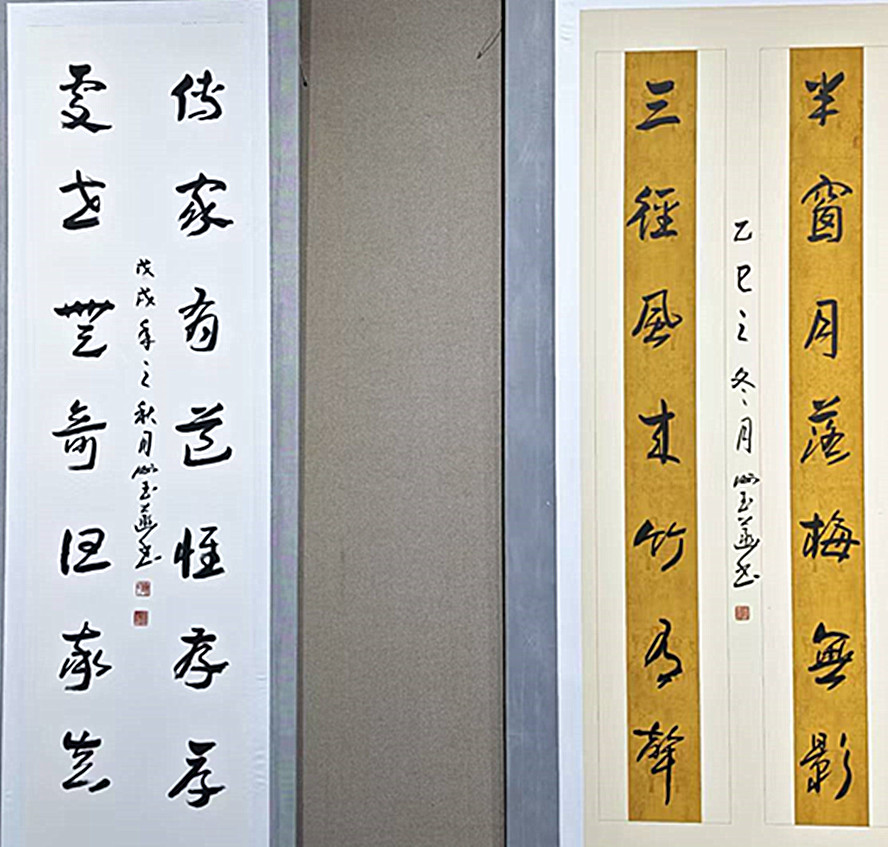 半窗月落梅無影
三徑風来竹有聲
乙巳之冬月玉书
傳家有道惟存厚
處世無奇但率真
戊戌年之秋月玉书